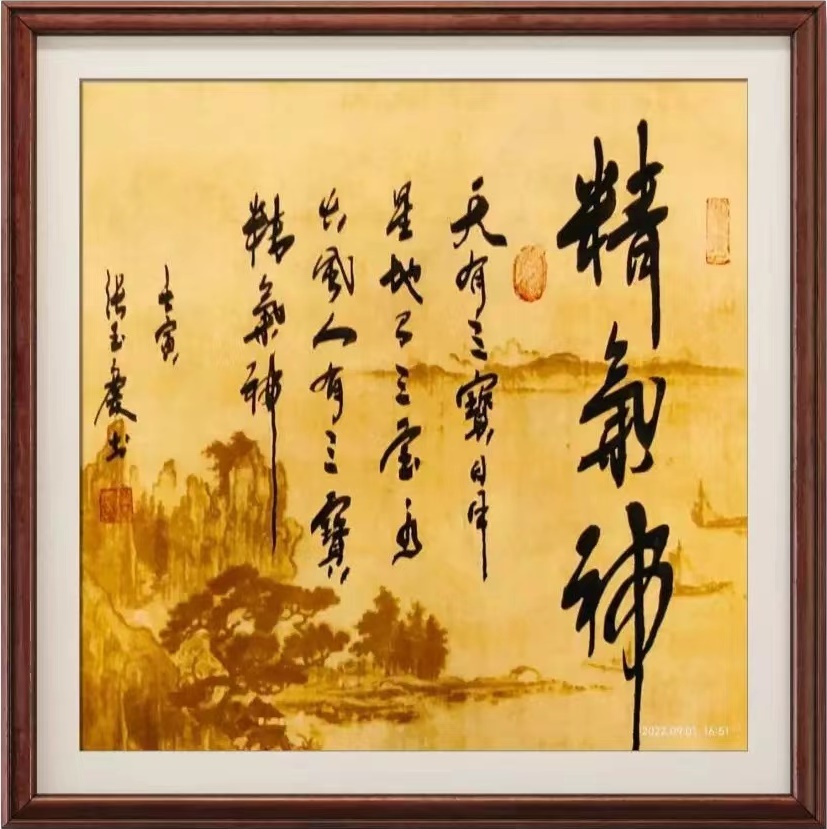 精氣神
天有三寶日月
星地有三宝水
火風人有三寶
精氣神
壬寅
张玉慶书
2022.09.01 16:51